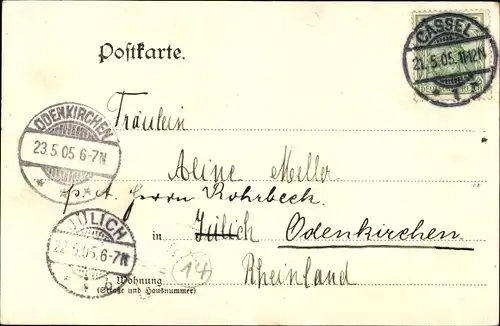 Postkarte.
CASSEL
21.5.05.11-12N
* 1
ODENKIRCHEN
23.5.05 6-7N
* * *
Fräulein
Aline Meller.
p. A. Herrn Rohrbeck.
in Jülich Odenkirchen
JÜLICH
22.5.05.6-7N
14
Rheinland
Wohnung
(Straße und Hausnummer)